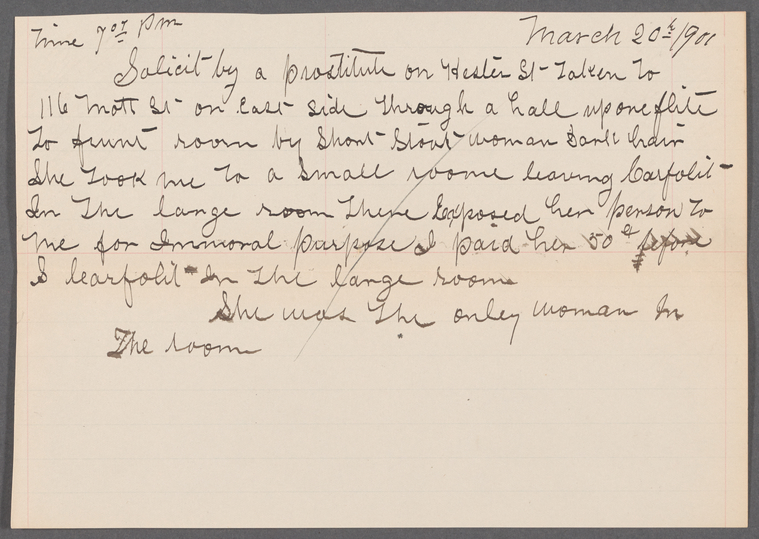 Time 7 07 Pm
March 20th/1901
Solicit by a prostitute on Hester St Taken To
116 Mott St on East side Through a hall up one flite
To frunt room by Short Stout woman Dark hair
She Took me To a Small roome leaving Carfolit
In The large room There Exposed her person To
me for Immoral purpose I paid her 50 ¢ before
I learfolit In The large room
She was The onley woman In
The room